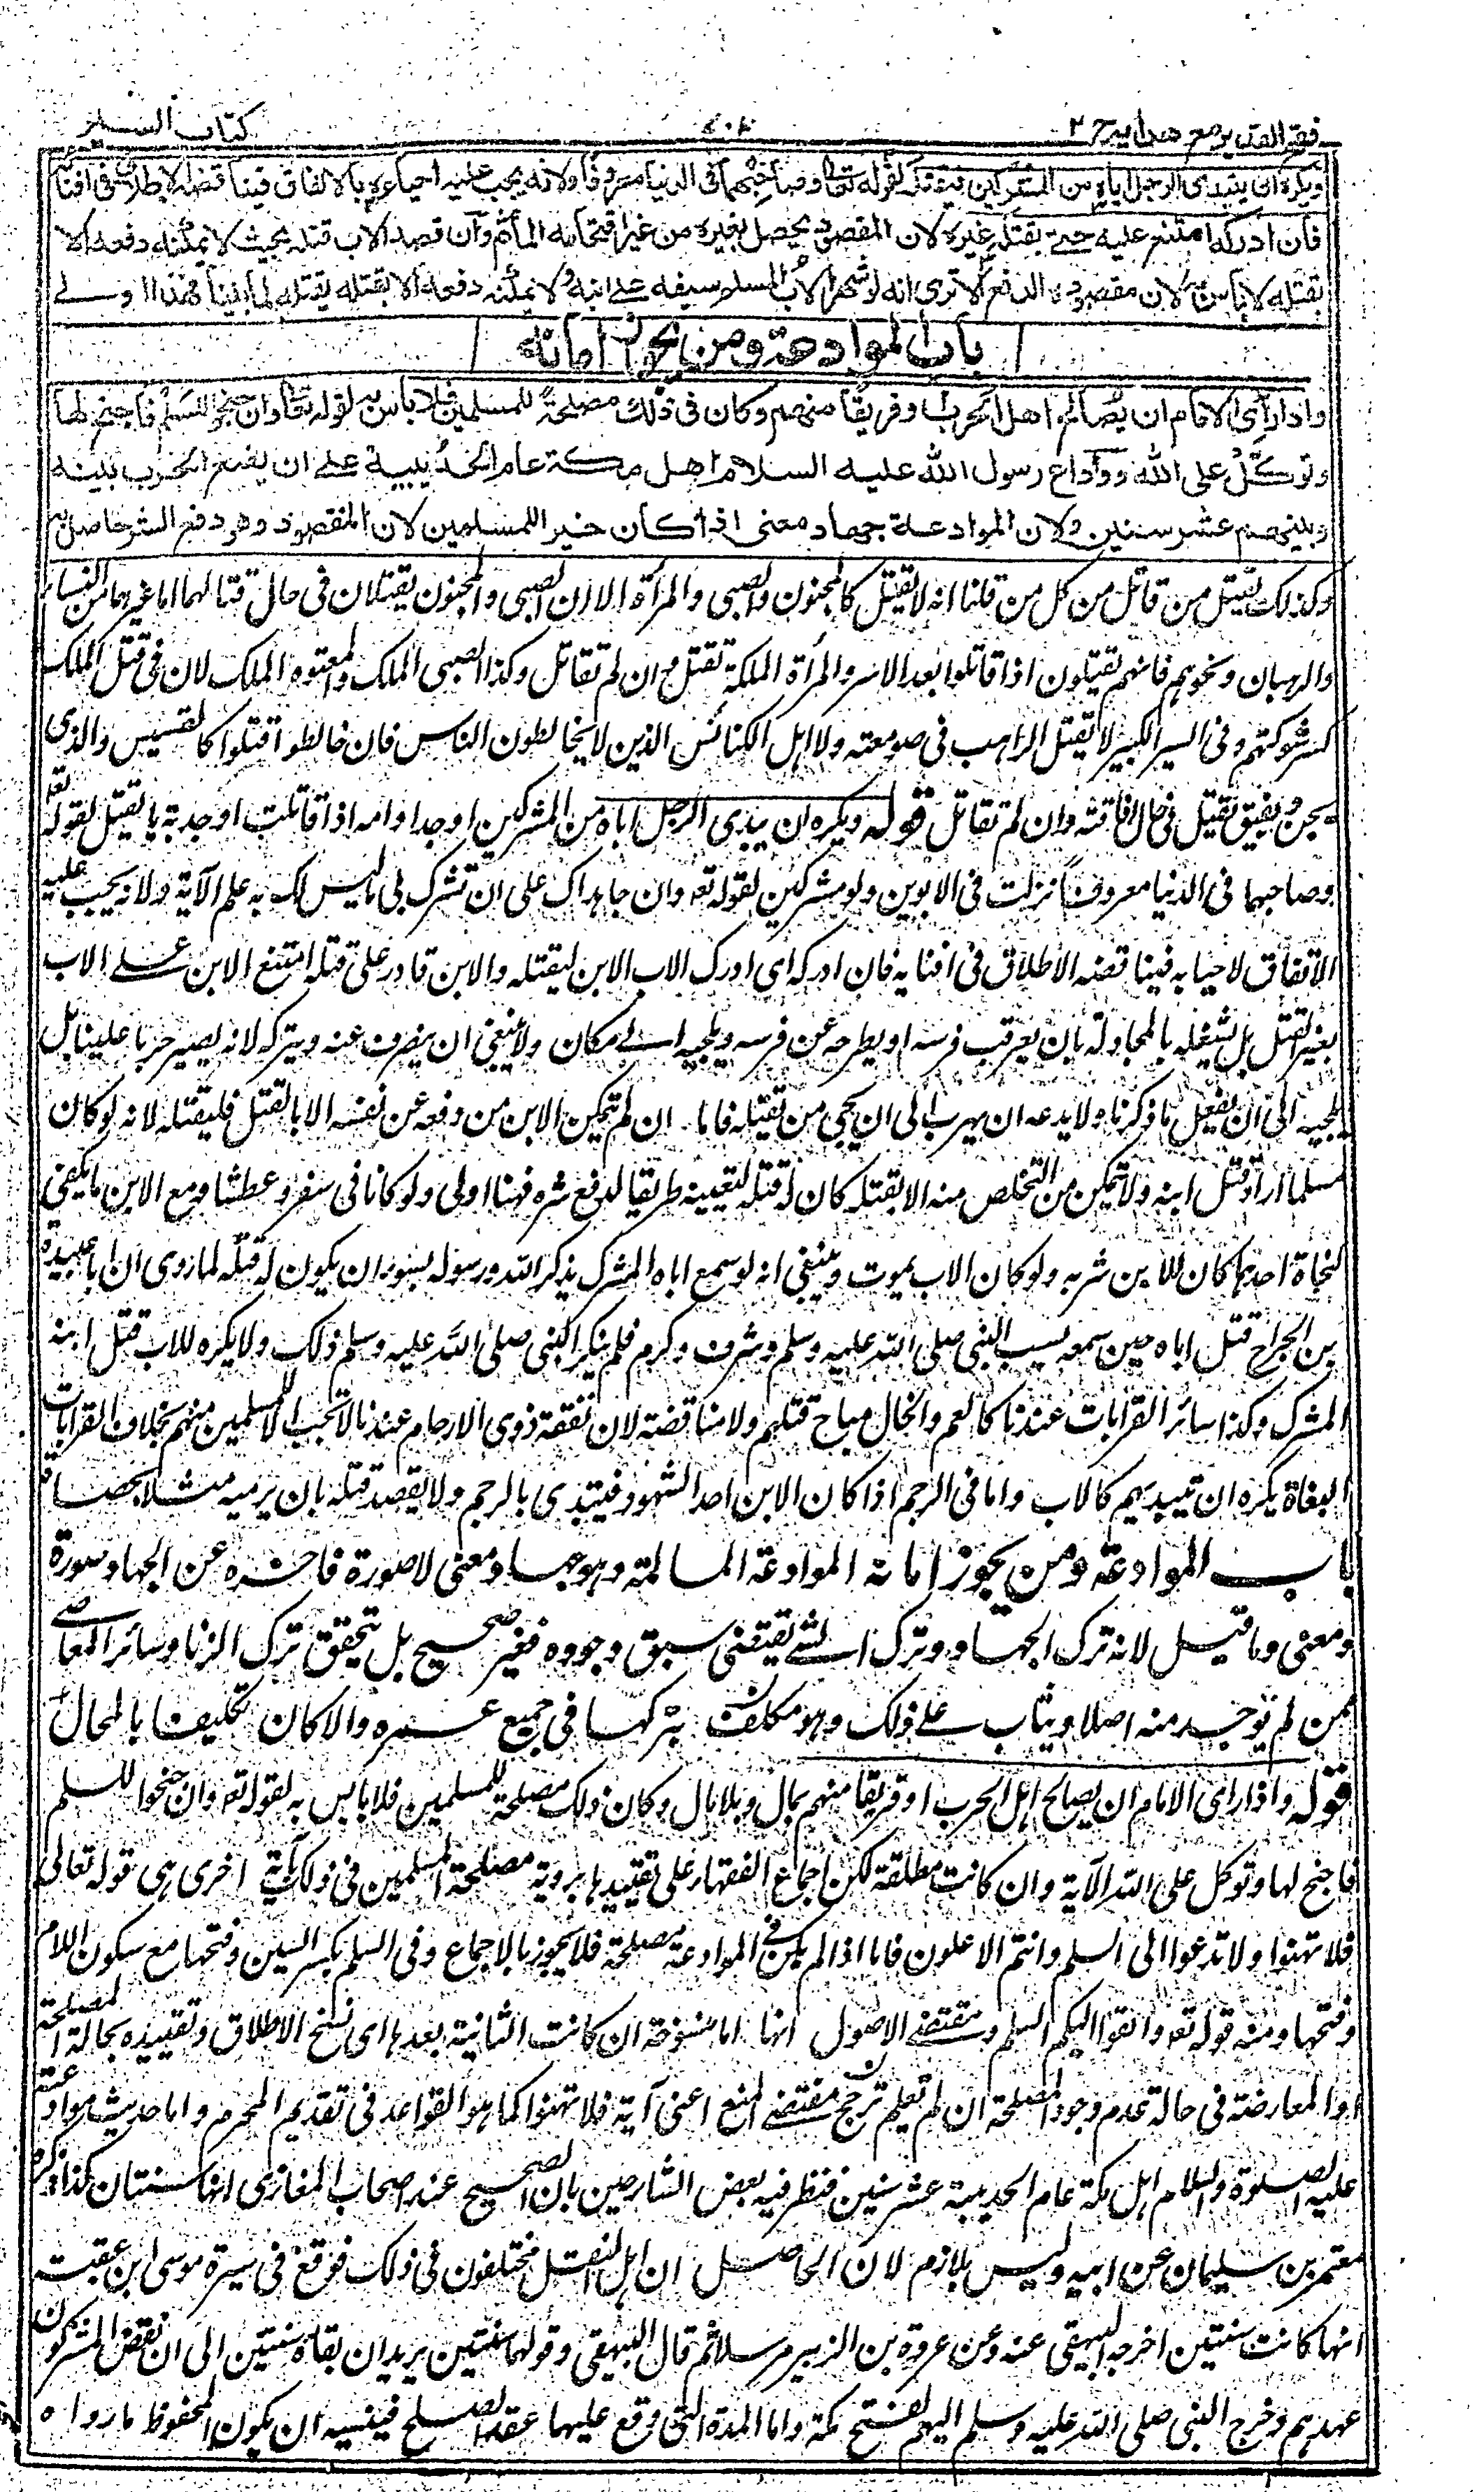 فتح القدير مع هدايه ج ٢
٧٠٨
كتاب السير
ويكره ان يبتدئ الرجل اباه من المشركين فيقتله لقوله تعالى وصاحبهما فى الدنيا معروفا ولانه يجب عليه احياءه بالانفاق فيناقضه الاطلاق فى افنائه
فان ادركه امتنع عليه حتى يقتله غيره لان المقصود يحصل بغيره من غير اقتحامه المأثم وان قصد الاب قتله بحيث لا يمكنه دفعه الا
بقتله لا بأس به لان مقصوده الدفع الا ترى انه لو شهر الاب المسلم سيفه على ابنه ولا يمكنه دفعه الا بقتله يقتله لما بينا فهذا اولى
باب الموادعة ومن يجوز امانه
واذا رأى الامام ان يصالح اهل الحرب او فريقا منهم وكان فى ذلك مصلحة للمسلمين فلا بأس به لقوله تعالى وان جنحوا للسلم فاجنح لها
وتوكل على الله ووادع رسول الله عليه السلام اهل مكة عام الحديبية على ان يضع الحرب بينه
وبينهم عشر سنين ولان الموادعة جهاد معنى اذا كان خيرا للمسلمين لان المقصود وهو دفع الشر حاصل به
وكذلك يقتل من قاتل من كل من قلنا انه لا يقتل كالمجنون والصبى والمرأة الا ان الصبى والمجنون يقتلان فى حال قتالهما اما غيرهما من النساء
والرهبان ونحوهم فانهم يقتلون اذا قاتلوا بعد الاسر والمرأة الملكة تقتل وان لم تقاتل وكذا الصبى الملك والمعتوه الملك لان فى قتل الملك
كسر شوكتهم وفى السير الكبير لا يقتل الراهب فى صومعته ولا اهل الكنائس الذين لا يخالطون الناس فان خالطوا قتلوا كالقسيس والذى
يجن ويفيق يقتل فى حال افاقته وان لم تقاتل قوله ويكره ان يبدى الرجل اباه من المشركين او جدا وامه اذا قاتلت او جدته بالقتل لقوله تعه
وصاحبهما فى الدنيا معروفا نزلت فى الابوين ولو مشركين لقوله تعه وان جاهداك على ان تشرك بى ما ليس لك به علم الآية ولانه يجب عليه
الانفاق لاحيا به فيناقضه الاطلاق فى افنا يه فان ادركه اى ادرك الاب الابن ليقتله والابن قادر على قتله امتنع الابن على الاب
بغير القتل بل يشغله بالمحاولة بان يعرقب فرسه او يطرحه عن فرسه ويلجيه الى مكان ولا ينبغى ان ينصرف عنه ويتركه لانه يصير حربا علينا بل
يلجيه الى ان يفعل ما ذكرنا ولا يدعه ان يهرب الى ان يجى من يقتله فاما ان لم يتمكن الابن من دفعه عن نفسه الا بالقتل فليقتله لانه لو كان
مسلما اراد قتل ابنه ولا يتمكن من التخلص منه الا بقتله كان له قتله لتعيينه طريقا لدفع شره فهنا اولى ولو كانا فى سفر وعطشا ومع الابن ما يكفى
لنجاة احدهما كان للابن شربه ولو كان الاب يموت وينبغى انه لو سمع اباه المشرك يذكر الله ورسوله بسوء ان يكون له قتله لما روى ان ابا عبيدة
بن الجراح قتل اباه حين سمعه يسب النبى صلى الله عليه وسلم وشرف وكرم فلم ينكر النبى صلى الله عليه وسلم ذلك ولا يكره للاب قتل ابنه
المشرك وكذا سائر القرابات عندنا كالعم والخال مباح قتلهم ولا مناقضة لان نفقة ذوى الارحام عندنا لا تجب الا للمسلمين منهم بخلاف القرابات
البغاة يكره ان يبتديهم كالاب واما فى الرجم اذا كان الابن احد الشهود فيبتدى بالرجم ولا يقصد قتله بان يرميه مثلا بحصاة
باب الموادعة ومن يجوز امانه الموادعة المسالمة وهو جهاد معنى لا صورة فاخره عن الجهاد صورة
ومعنى وما قيل لانه ترك الجهاد وترك الشئ يقتضى سبق وجوده فغير صحيح بل يتحقق ترك الزنا وسائر المعاصى
ممن لم يوجد منه اصلا ويثاب على ذلك وهو مكلف بتركها فى جميع عمره والا كان تكليفا بالمحال
قوله واذا راى الامام ان يصالح اهل الحرب او فريقا منهم بمال وبلا مال وكان ذلك مصلحة للمسلمين فلا باس به لقوله تعه وان جنحوا للسلم
فاجنح لها وتوكل على الله الآية وان كانت مطلقة لكن اجماع الفقهاء على تقييدها بروية مصلحة المسلمين فى ذلك بآية اخرى هى قوله تعالى
فلا تهنوا ولا تدعوا الى السلم وانتم الاعلون فاما اذا لم يكن فى الموادعة مصلحة فلا يجوز بالاجماع وفى السلم بكسر السين وفتحها مع سكون اللام
وفتحها ومنه قوله تعه والقوا اليكم السلم ومقتضى الاصول انها اما منسوخة ان كانت الثانية بعدها اى نسخ الاطلاق وتقييده بحالة المصلحة
او المعارضة فى حالة عدم وجود المصلحة ان لم يعلم ترجح مقتضى المنع اعنى آية فلا تهنوا كما هو القواعد فى تقديم المحرم واما حديث موادعته
عليه الصلوة والسلام اهل مكة عام الحديبية عشر سنين فنظر فيه بعض الشارحين بان الصحيح عند اصحاب المغازى انها سنتان كذا ذكره
معتمر بن سليمان عن ابيه وليس بلازم لان الحاصل ان اهل النقل مختلفون فى ذلك فوقع فى سيرة موسى ابن عقبة
انها كانت سنتين اخرجه البيهقى عنه وعن عروة بن الزبير مرسلا ثم قال البيهقى وقولهما سنتين يريد ان بقاه سنتين الى ان نقض المشركون
عهدهم وخرج النبى صلى الله عليه وسلم اليهم لفتح مكة واما المدة التى وقع عليها عقد الصلح فيشبه ان يكون المحفوظ ما رواه